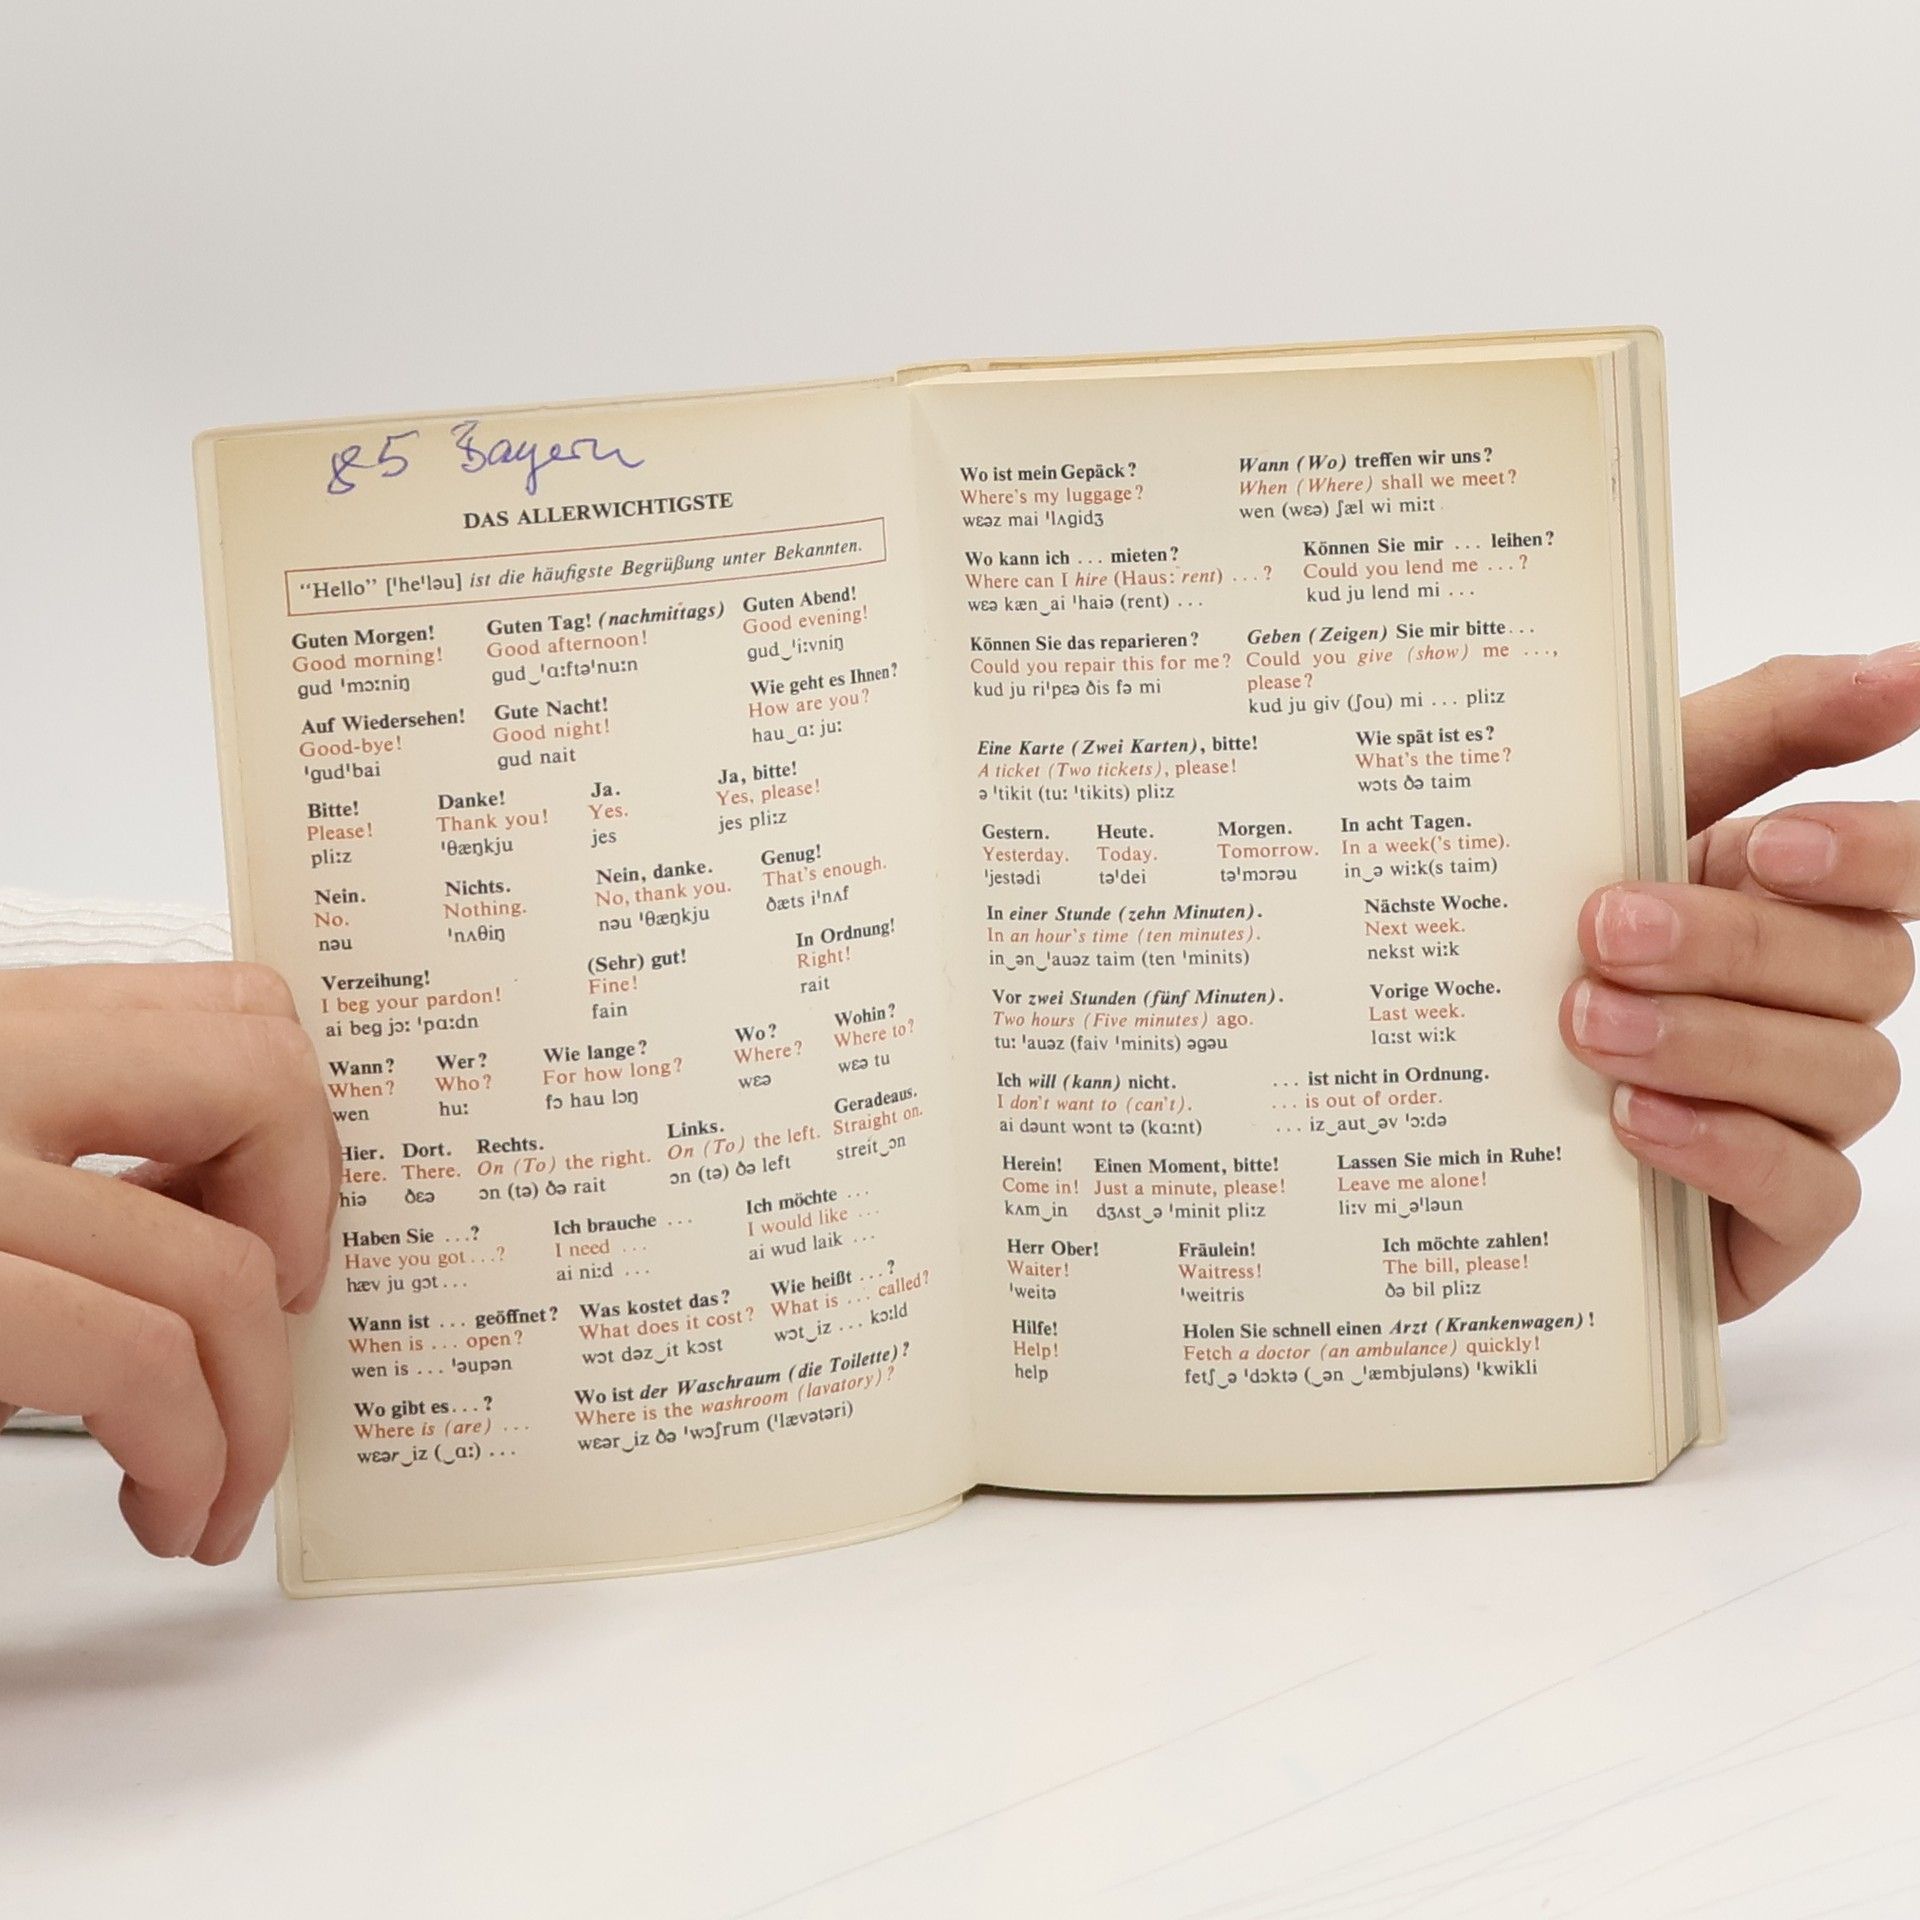 85 Bayern
DAS ALLERWICHTIGSTE
“Hello” ['he'ləu] ist die häufigste Begrüßung unter Bekannten.
Guten Morgen! Guten Tag! (nachmittags) Guten Abend!
Good morning! Good afternoon! Good evening!
gud 'mɔːniŋ gud‿'ɑːftə'nuːn gud‿'iːvniŋ
Auf Wiedersehen! Gute Nacht! Wie geht es Ihnen?
Good-bye! Good night! How are you?
'gud'bai gud nait hau‿ɑː juː
Bitte! Danke! Ja. Ja, bitte!
Please! Thank you! Yes. Yes, please!
pliːz 'θæŋkju jes jes pliːz
Nein. Nichts. Nein, danke. Genug!
No. Nothing. No, thank you. That's enough.
nəu 'nʌθiŋ nəu 'θæŋkju ðæts i'nʌf
Verzeihung! (Sehr) gut! In Ordnung!
I beg your pardon! Fine! Right!
ai beg jɔː 'pɑːdn fain rait
Wann? Wer? Wie lange? Wo? Wohin?
When? Who? For how long? Where? Where to?
wen huː fɔ hau lɔŋ wɛə wɛə tu
Hier. Dort. Rechts. Links. Geradeaus.
Here. There. On (To) the right. On (To) the left. Straight on.
hiə ðɛə ɔn (tə) ðə rait ɔn (tə) ðə left streit‿ɔn
Haben Sie ...? Ich brauche ... Ich möchte ...
Have you got ...? I need ... I would like ...
hæv ju gɔt ... ai niːd ... ai wud laik ...
Wann ist ... geöffnet? Was kostet das? Wie heißt ...?
When is ... open? What does it cost? What is ... called?
wen is ... 'əupən wɔt dəz‿it kɔst wɔt‿iz ... kɔːld
Wo gibt es ...? Wo ist der Waschraum (die Toilette)?
Where is (are) ... Where is the washroom (lavatory)?
wɛər‿iz (‿ɑː) ... wɛər‿iz ðə 'wɔʃrum ('lævətəri)
Wo ist mein Gepäck? Wann (Wo) treffen wir uns?
Where's my luggage? When (Where) shall we meet?
wɛəz mai 'lʌgidʒ wen (wɛə) ʃæl wi miːt
Wo kann ich ... mieten? Können Sie mir ... leihen?
Where can I hire (Haus: rent) ...? Could you lend me ...?
wɛə kæn‿ai 'haiə (rent) ... kud ju lend mi ...
Können Sie das reparieren? Geben (Zeigen) Sie mir bitte ...
Could you repair this for me? Could you give (show) me ...,
please?
kud ju ri'pɛə ðis fə mi kud ju giv (ʃou) mi ... pliːz
Eine Karte (Zwei Karten), bitte! Wie spät ist es?
A ticket (Two tickets), please! What's the time?
ə 'tikit (tuː 'tikits) pliːz wɔts ðə taim
Gestern. Heute. Morgen. In acht Tagen.
Yesterday. Today. Tomorrow. In a week('s time).
'jestədi tə'dei tə'mɔrəu in‿ə wiːk(s taim)
In einer Stunde (zehn Minuten). Nächste Woche.
In an hour's time (ten minutes). Next week.
in‿ən‿'auəz taim (ten 'minits) nekst wiːk
Vor zwei Stunden (fünf Minuten). Vorige Woche.
Two hours (Five minutes) ago. Last week.
tuː 'auəz (faiv 'minits) əgəu lɑːst wiːk
Ich will (kann) nicht. ... ist nicht in Ordnung.
I don't want to (can't). ... is out of order.
ai dəunt wɔnt tə (kɑːnt) ... iz‿aut‿əv 'ɔːdə
Herein! Einen Moment, bitte! Lassen Sie mich in Ruhe!
Come in! Just a minute, please! Leave me alone!
kʌm‿in dʒʌst‿ə 'minit pliːz liːv mi‿ə'ləun
Herr Ober! Fräulein! Ich möchte zahlen!
Waiter! Waitress! The bill, please!
'weitə 'weitris ðə bil pliːz
Hilfe! Holen Sie schnell einen Arzt (Krankenwagen)!
Help! Fetch a doctor (an ambulance) quickly!
help fetʃ‿ə 'dɔktə (‿ən‿'æmbjuləns) 'kwikli